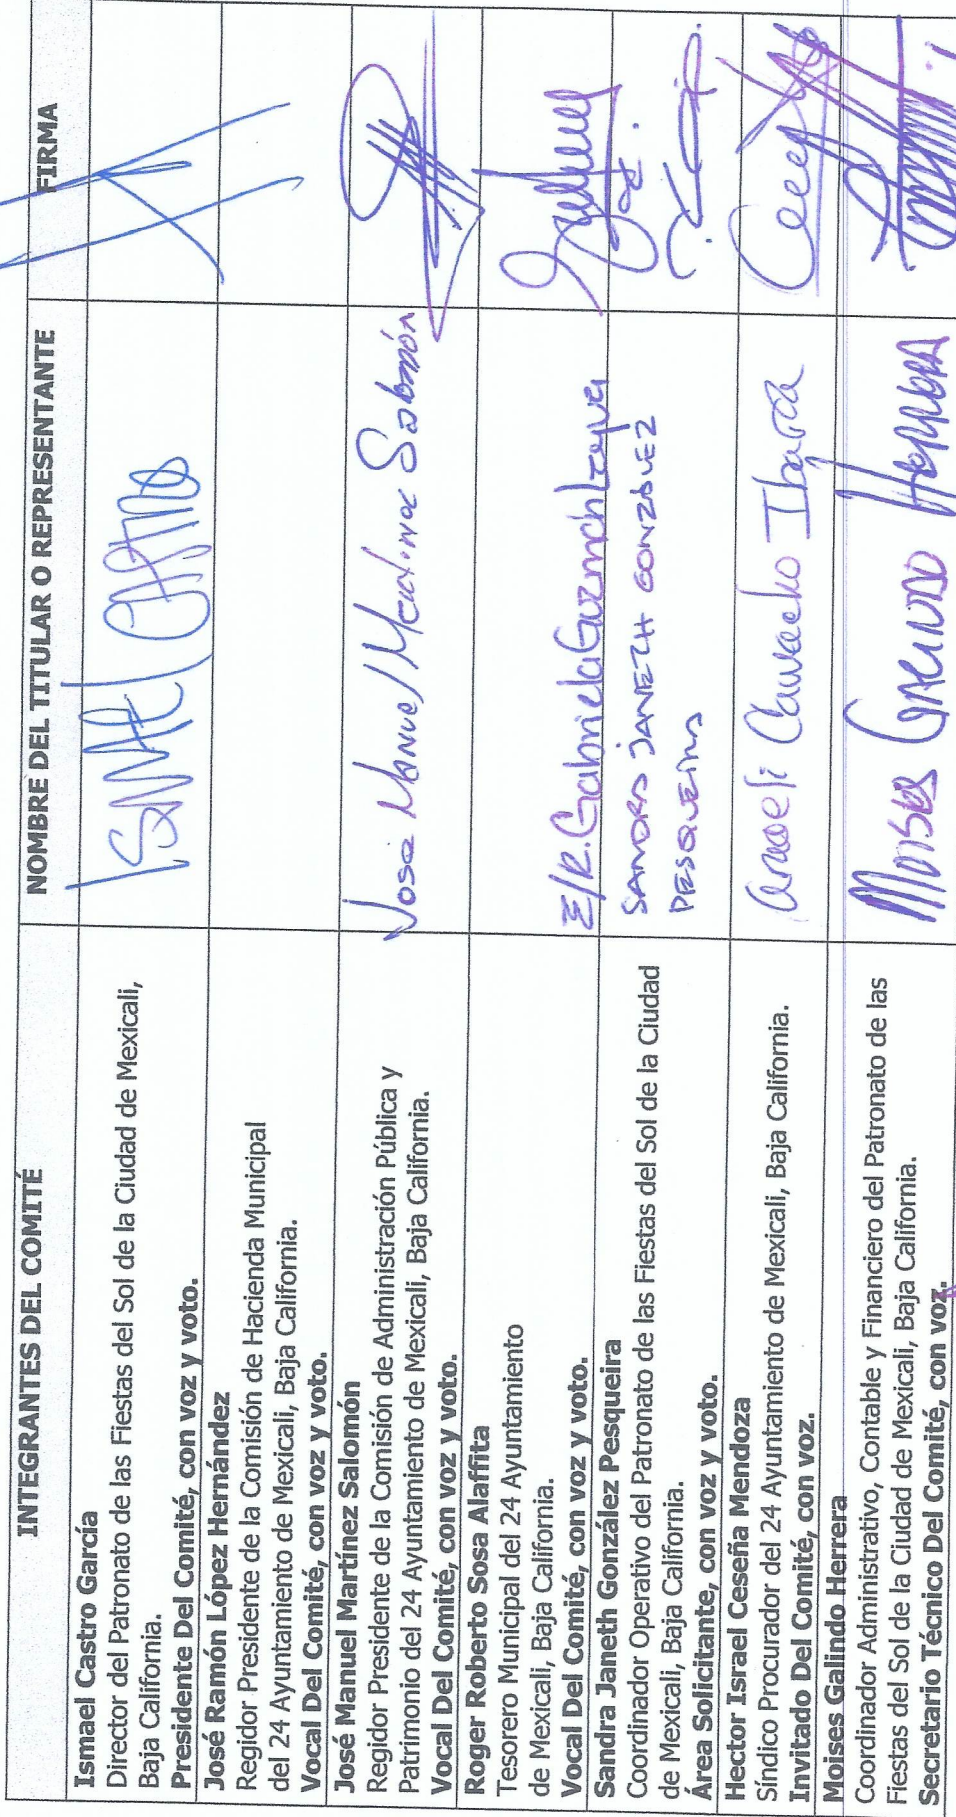 INTEGRANTES DEL COMITÉ
NOMBRE DEL TITULAR O REPRESENTANTE
FIRMA
Ismael Castro García
Director del Patronato de las Fiestas del Sol de la Ciudad de Mexicali,
Baja California.
Presidente Del Comité, con voz y voto.
ISMAEL CASTRO
José Ramón López Hernández
Regidor Presidente de la Comisión de Hacienda Municipal
del 24 Ayuntamiento de Mexicali, Baja California.
Vocal Del Comité, con voz y voto.
José Manuel Martínez Salomón
Regidor Presidente de la Comisión de Administración Pública y
Patrimonio del 24 Ayuntamiento de Mexicali, Baja California.
Vocal Del Comité, con voz y voto.
Jose Manuel Martinez Salomón
Roger Roberto Sosa Alaffita
Tesorero Municipal del 24 Ayuntamiento
de Mexicali, Baja California.
Vocal Del Comité, con voz y voto.
E/R. Gabriela Guzmán
Sandra Janeth González Pesqueira
Coordinador Operativo del Patronato de las Fiestas del Sol de la Ciudad
de Mexicali, Baja California.
Área Solicitante, con voz y voto.
SANDRA JANETH GONZÁLEZ
PESQUEIRA
Hector Israel Ceseña Mendoza
Síndico Procurador del 24 Ayuntamiento de Mexicali, Baja California.
Invitado Del Comité, con voz.
Araceli Camacho Ibarra
Moises Galindo Herrera
Coordinador Administrativo, Contable y Financiero del Patronato de las
Fiestas del Sol de la Ciudad de Mexicali, Baja California.
Secretario Técnico Del Comité, con voz.
MOISES GALINDO HERRERA